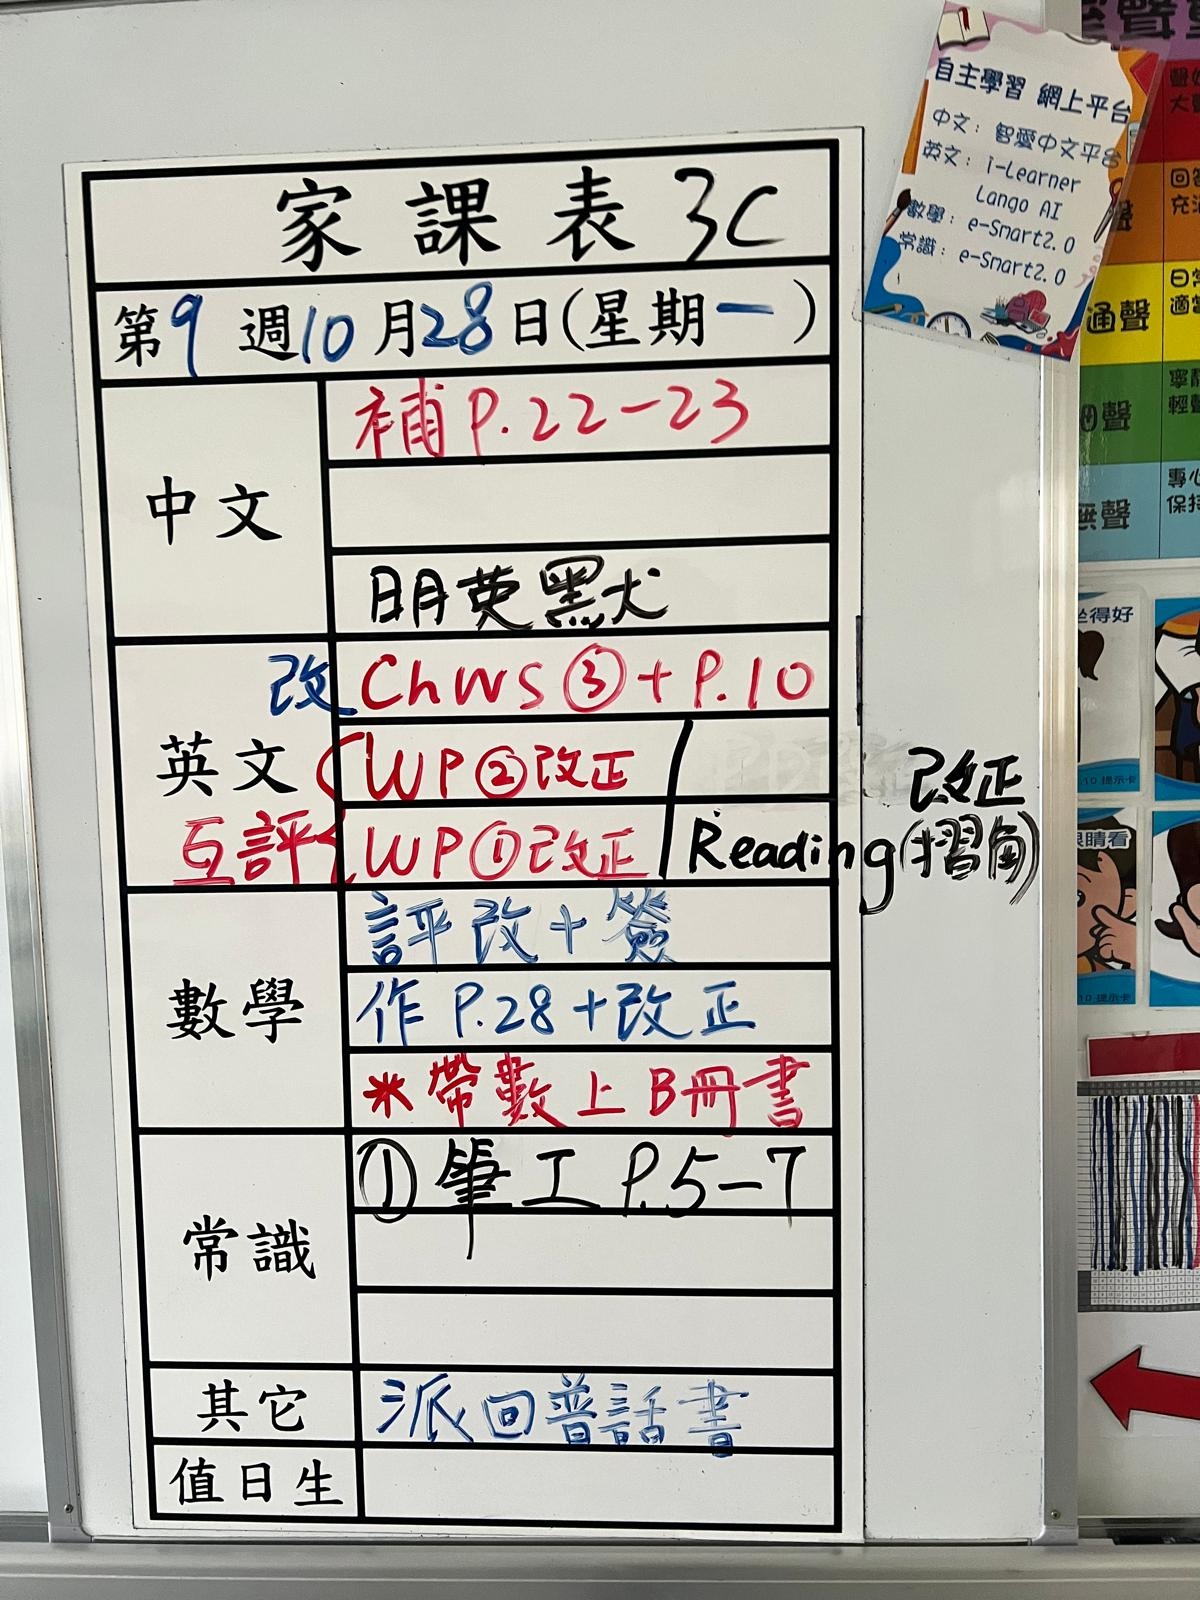 家課表 3C
第9週10月28日(星期一)
中文
補 P.22-23
明英默
英文
改 Ch WS ③ + P.10
WP ② 改正
改正
互評 WP ① 改正
Reading (摺角)
數學
評改 + 簽
作 P.28 + 改正
* 帶數上B冊書
常識
① 筆工 P.5-7
其它
派回普話書
值日生
自主學習 網上平台
中文: 智愛中文平台
英文: i-Learner
Lango AI
數學: e-Smart2.0
常識: e-Smart2.0
通聲
坐得好
10 提示卡
眼睛看
10 提示卡